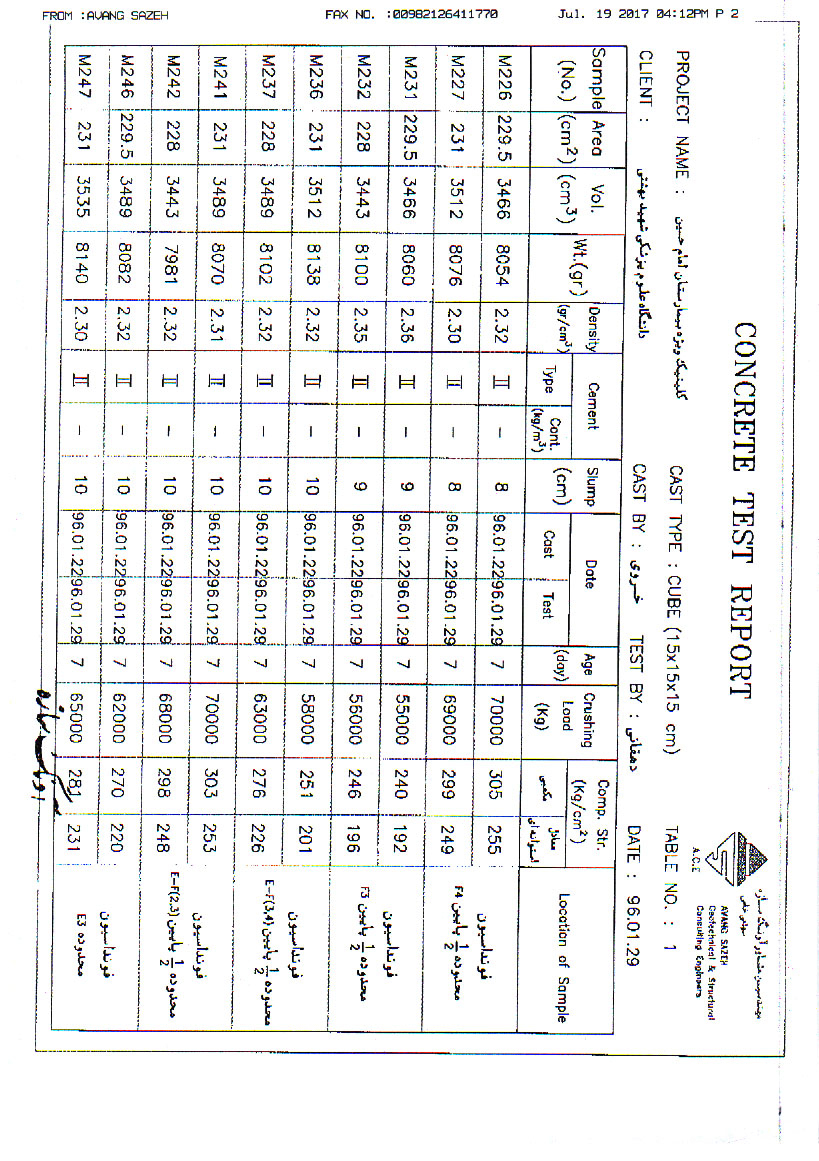 FROM :AVANG SAZEH FAX NO. :00982126411770 Jul. 19 2017 04:12PM P 2
CONCRETE TEST REPORT
مهندسین مشاور آونگ سازه
AVANG SAZEH
Geotechnical & Structural
Consulting Engineers
A.C.E
PROJECT NAME : کلینیک ویژه بیمارستان امام حسین CAST TYPE : CUBE (15x15x15 cm) TABLE NO. : 1
CLIENT : دانشگاه علوم پزشکی شهید بهشتی CAST BY : خسروی TEST BY : دهقانی DATE : 96.01.29
Sample (No.) Area (cm2) Vol. (cm3) Wt.(gr) Density (gr/cm3) Cement Type Cont. (kg/m3) Slump (cm) Date Cast Test Age (day) Crushing Load (Kg) Comp. Str. (Kg/cm2) مکعبی معادل استوانه‌ای Location of Sample
M226 229.5 3466 8054 2.32 II – 8 96.01.22 96.01.29 7 70000 305 255 فونداسیون
M227 231 3512 8076 2.30 II – 8 96.01.22 96.01.29 7 69000 299 249 محدوده 1/2 پایین F4
M231 229.5 3466 8060 2.36 II – 9 96.01.22 96.01.29 7 55000 240 192 فونداسیون
M232 228 3443 8100 2.35 II – 9 96.01.22 96.01.29 7 56000 246 196 محدوده 1/2 پایین F3
M236 231 3512 8138 2.32 II – 10 96.01.22 96.01.29 7 58000 251 201 فونداسیون
M237 228 3489 8102 2.32 II – 10 96.01.22 96.01.29 7 63000 276 226 محدوده 1/2 پایین E–F(3,4)
M241 231 3489 8070 2.31 II – 10 96.01.22 96.01.29 7 70000 303 253 فونداسیون
M242 228 3443 7981 2.32 II – 10 96.01.22 96.01.29 7 68000 298 248 محدوده 1/2 پایین E–F(2,3)
M246 229.5 3489 8082 2.32 II – 10 96.01.22 96.01.29 7 62000 270 220 فونداسیون
M247 231 3535 8140 2.30 II – 10 96.01.22 96.01.29 7 65000 281 231 محدوده E3